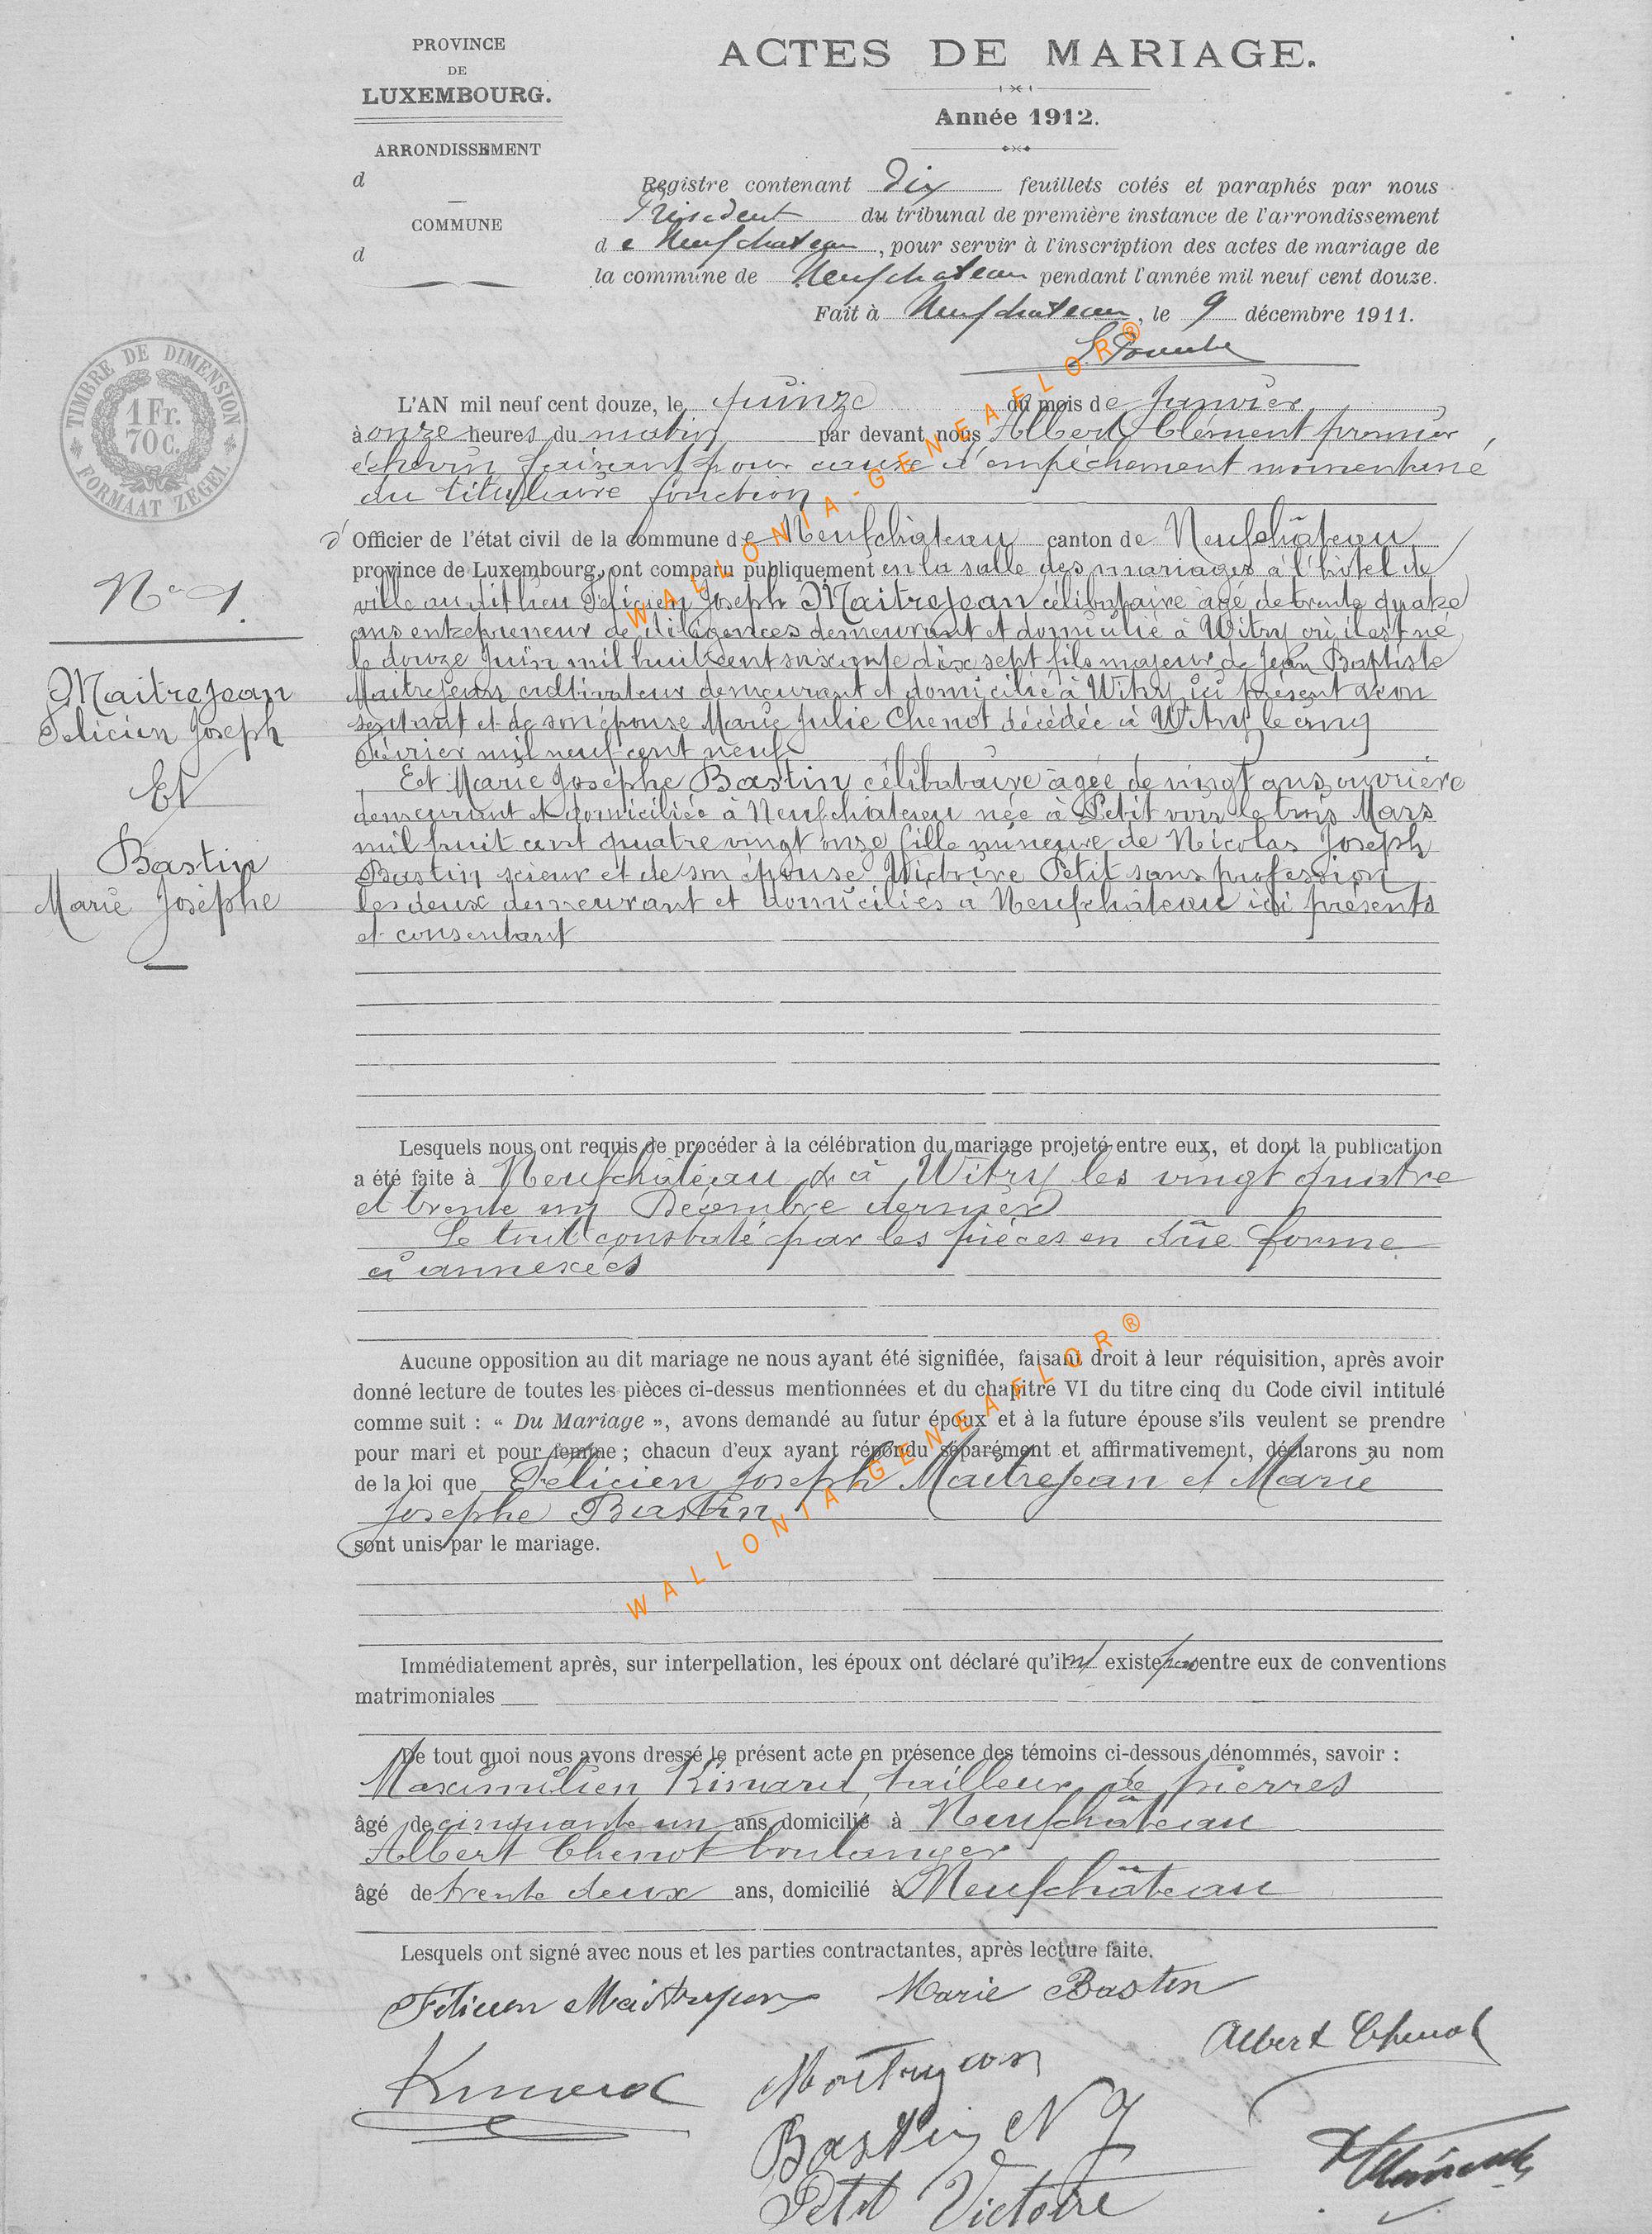 PROVINCE
DE
LUXEMBOURG.
ARRONDISSEMENT
d
COMMUNE
d
ACTES DE MARIAGE.
Année 1912.
Registre contenant Dix feuillets cotés et paraphés par nous
Président du tribunal de première instance de l'arrondissement
de Neufchateau, pour servir à l'inscription des actes de mariage de
la commune de Neufchateau pendant l'année mil neuf cent douze.
Fait à Neufchateau, le 9 décembre 1911.
TIMBRE DE DIMENSION
1 Fr.
70 C.
FORMAAT ZEGEL
L'AN mil neuf cent douze, le quinze du mois de Janvier
à onze heures du matin par devant nous Albert Clément premier
échevin faisant pour cause d'empêchement momentané
du titulaire fonction
d' Officier de l'état civil de la commune de Neufchâteau canton de Neufchâteau
province de Luxembourg, ont comparu publiquement en la salle des mariages à l'hôtel de
ville au dit lieu Félicien Joseph MaitreJean célibataire âgé de trente quatre
ans entrepreneur de diligences demeurant et domicilié à Witry où il est né
le douze Juin mil huit cent soixante dix sept fils majeur de Jean Baptiste
MaitreJean cultivateur demeurant et domicilié à Witry ici présent et con
sentant et de son épouse Marie Julie Chenot décédée à Witry le cinq
Février mil neuf cent neuf
Et Marie Josèphe Bastin célibataire âgée de vingt ans ouvrière
demeurant et domiciliée à Neufchâteau née à Petit voir le trois Mars
mil huit cent quatre vingt onze fille mineure de Nicolas Joseph
Bastin scieur et de son épouse Victoire Petit sans profession
les deux demeurant et domiciliés à Neufchâteau ici présents
et consentant
N° 1.
MaitreJean
Félicien Joseph
Et
Bastin
Marie Josèphe
Lesquels nous ont requis de procéder à la célébration du mariage projeté entre eux, et dont la publication
a été faite à Neufchâteau & à Witry les vingt quatre
et trente un Décembre dernier
Le tout constaté par les pièces en dûe forme
ci annexées
Aucune opposition au dit mariage ne nous ayant été signifiée, faisant droit à leur réquisition, après avoir
donné lecture de toutes les pièces ci-dessus mentionnées et du chapitre VI du titre cinq du Code civil intitulé
comme suit : « Du Mariage », avons demandé au futur époux et à la future épouse s'ils veulent se prendre
pour mari et pour femme ; chacun d'eux ayant répondu séparément et affirmativement, déclarons au nom
de la loi que Félicien Joseph MaitreJean et Marie
Josephe Bastin
sont unis par le mariage.
Immédiatement après, sur interpellation, les époux ont déclaré qu'il n' existe pas entre eux de conventions
matrimoniales
De tout quoi nous avons dressé le présent acte en présence des témoins ci-dessous dénommés, savoir :
Maximilien Kinard, tailleur de pierres
âgé de cinquante un ans, domicilié à Neufchâteau
Albert Chenot boulanger
âgé de trente deux ans, domicilié à Neufchâteau
Lesquels ont signé avec nous et les parties contractantes, après lecture faite.
Félicien Maitrejean Marie Bastin
Albert Chenot
Kinard
Maitrejean
Bastin N J
Petit Victoire
A Clément
WALLONIA-GENEAELOR®
WALLONIA-GENEAELOR®